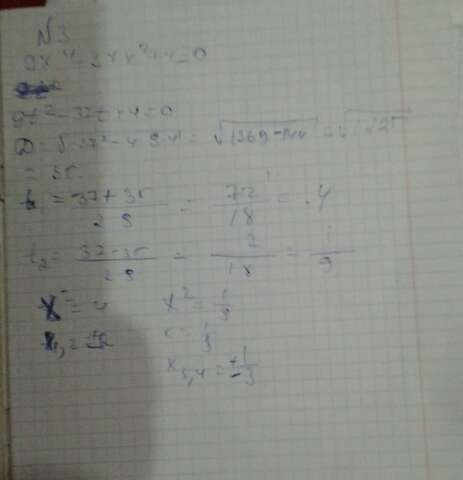 N3
9x⁴-37x²+4=0
9t²-37t+4=0
D=√37²-4·9·4 = √1369-144 = √1225
=35
t₁=37+35/2·9 = 72/18 = 4
t₂=37-35/2·9 = 2/18 = 1/9
x²=4 x²=1/9
x₁,₂=±2
x₃,₄=±1/3